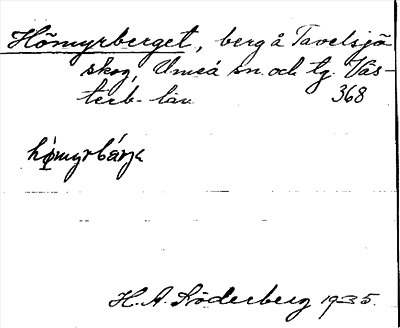 Hömyrberget, berg å Tavelsjö
skog, Umeå sn. och tg. Väs-
terb- län 368
hömyrbärje
H. A. Söderberg 1935.